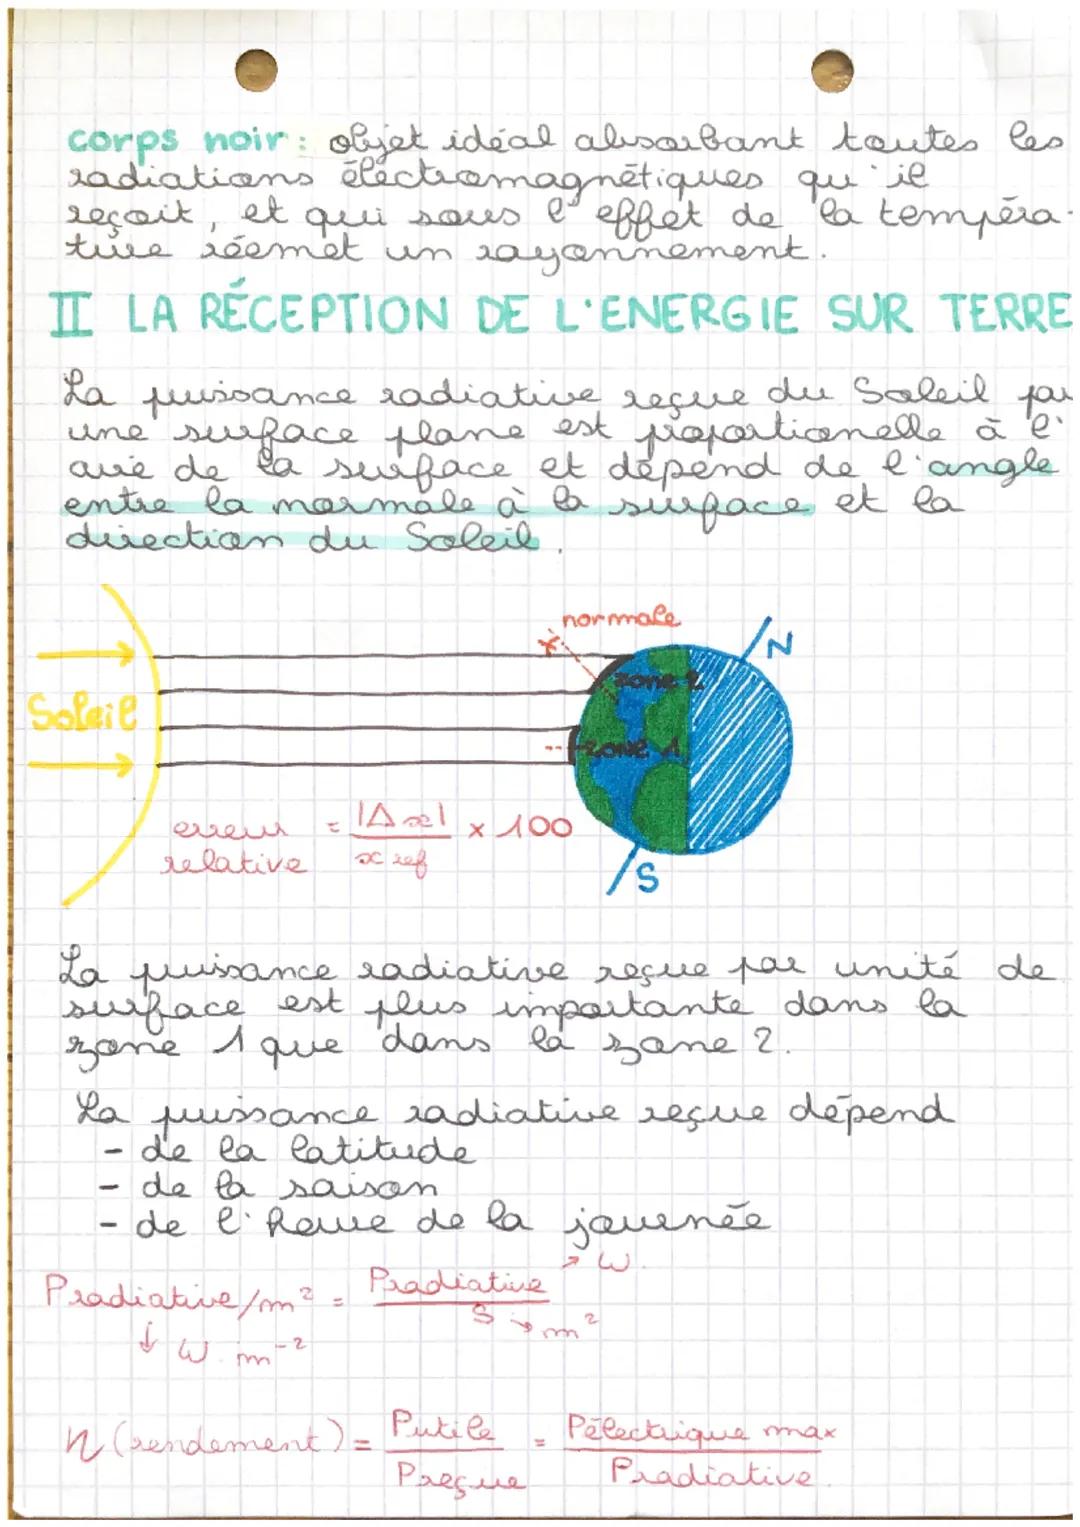 corps noir : objet idéal absorbant toutes les
radiations électromagnétiques qu'il
reçoit, et qui sous l'effet de la tempéra-
ture réemet un rayonnement.
II LA RÉCEPTION DE L'ENERGIE SUR TERRE
La puissance radiative reçue du Soleil par
une surface plane est proportionelle à l'
aire de la surface et dépend de l'angle
entre la normale à la surface et la
direction du Soleil.
normale
N
zone 2
Soleil
zone 1
erreur relative = |Δx| / x ref × 100
S
La puissance radiative reçue par unité de
surface est plus importante dans la
zone 1 que dans la zone 2.
La puissance radiative reçue dépend
- de la latitude
- de la saison
- de l'heure de la journée
Pradiative/m² = Pradiative → W. / S → m²
↓ W.m⁻²
η (rendement) = Putile / Preçue = Pélectrique max / Pradiative.